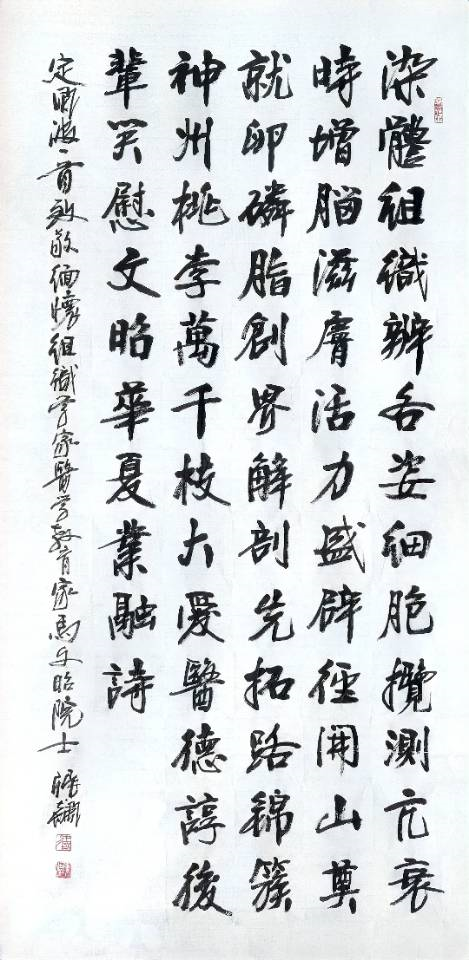 染體組織辨各姿細胞攬測亢衰
時增腦滋膚活力盛辟徑開山奠
就卵磷脂創界解剖先拓路錦簇
神州桃李萬千枝大愛醫德諄後
輩笑慰文昭華夏業融詩
定風波一首致敬缅懷組織学家醫学教育家馬文昭院士